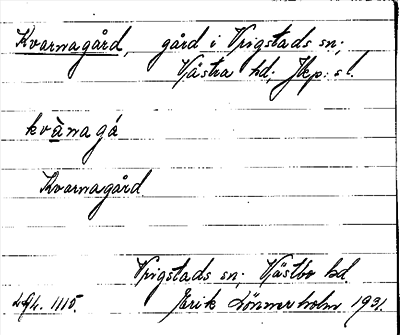 Kvarnagård, gård i Vrigstads sn;
Västra hd; Jkp: sl.
kvànagá
Kvarnagård
Vrigstads sn; Västbo hd.
Erik Lönnerholm 1931.